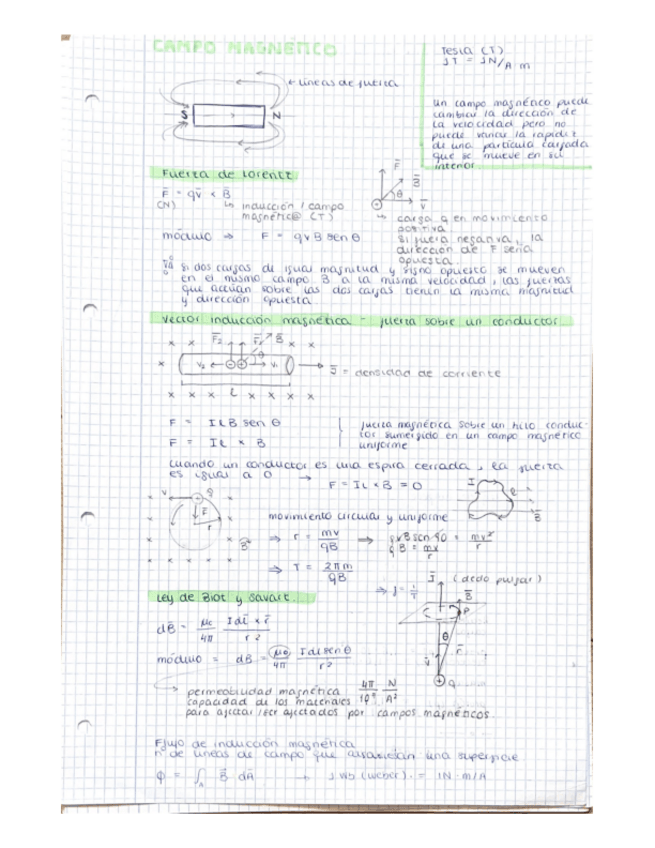 CAMPO MAGNÉTICO
Tesla (T)
1T = 1N/A m
← Líneas de fuerza
S N
un campo magnético puede
cambiar la dirección de
la velocidad pero no
puede variar la rapidez
de una partícula cargada
que se mueve en su
interior
Fuerza de Lorentz
F̄ = qv̄ × B̄
(N) ↳ inducción / campo
magnétic@ (T)
F̄ B̄ θ V̄
↳ carga q en movimiento
positiva
si fuera negativa, la
dirección de F sería
opuesta.
módulo ⇒ F = qvB sen θ
si dos cargas de igual magnitud y signo opuesto se mueven
en el mismo campo B a la misma velocidad, las fuerzas
que actúan sobre las dos cargas tienen la misma magnitud
y dirección opuesta.
Vector inducción magnética - fuerza sobre un conductor
x x F̄₂ F̄₁ B̄ x x
x V₂ V₁ θ J̄ = densidad de corriente
L
x x x x x x x
F = ILB sen θ
F = IL × B
fuerza magnética sobre un hilo conduc-
tor sumergido en un campo magnético
uniforme
Cuando un conductor es una espira cerrada, la fuerza
es igual a 0 → F = IL × B = 0
I B̄
V Q F̄ r B̄
movimiento circular y uniforme
⇒ r = mv/qB ⇒ qvB sen 90 = mv²/r
qB = mv/r
⇒ T = 2πm/qB ⇒ f = 1/T
Ley de Biot y Savart
Ī (dedo pulgar)
B̄ P θ r̄ V̄ q
dB̄ = μ₀/4π Idl̄ × r̄/r²
módulo = dB = μ₀/4π Idl sen θ/r²
→ permeabilidad magnética 4π/10⁷ N/A²
capacidad de los materiales
para afectar / ser afectados por campos magnéticos.
Flujo de inducción magnética
nº de líneas de campo que atraviesan una superficie
φ = ∫A B̄ dA → 1 Wb (weber) = 1N·m/A